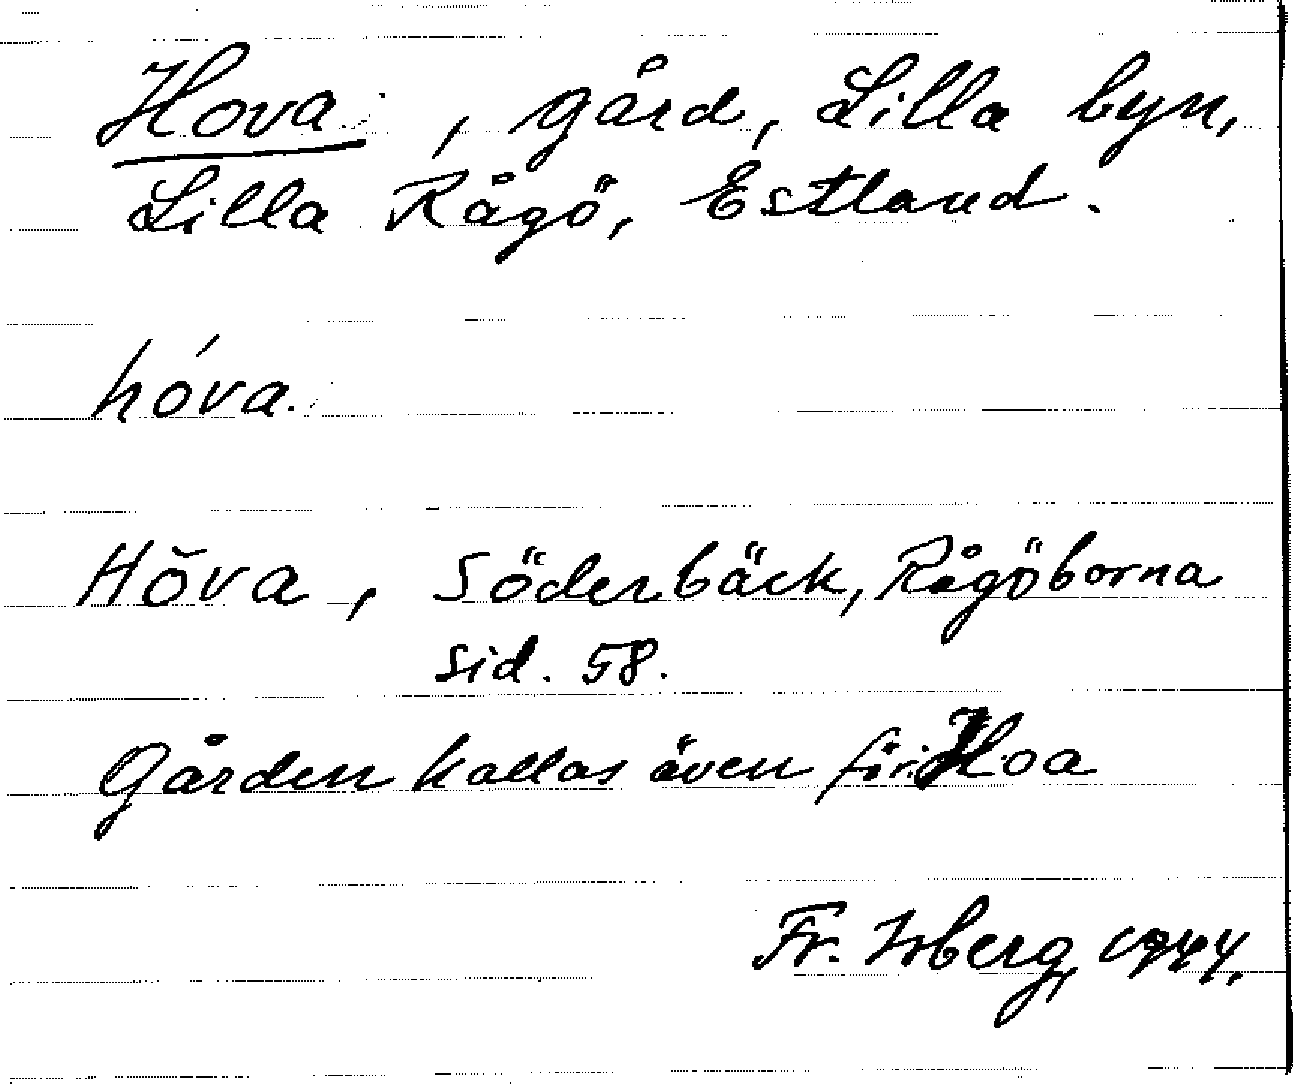 Hova , gård, Lilla byn,
Lilla Rågö, Estland.
hóva.
Hŏva, Söderbäck, Rågöborna
sid. 58.
Gården kallas även för Hoa
Fr. 1944.